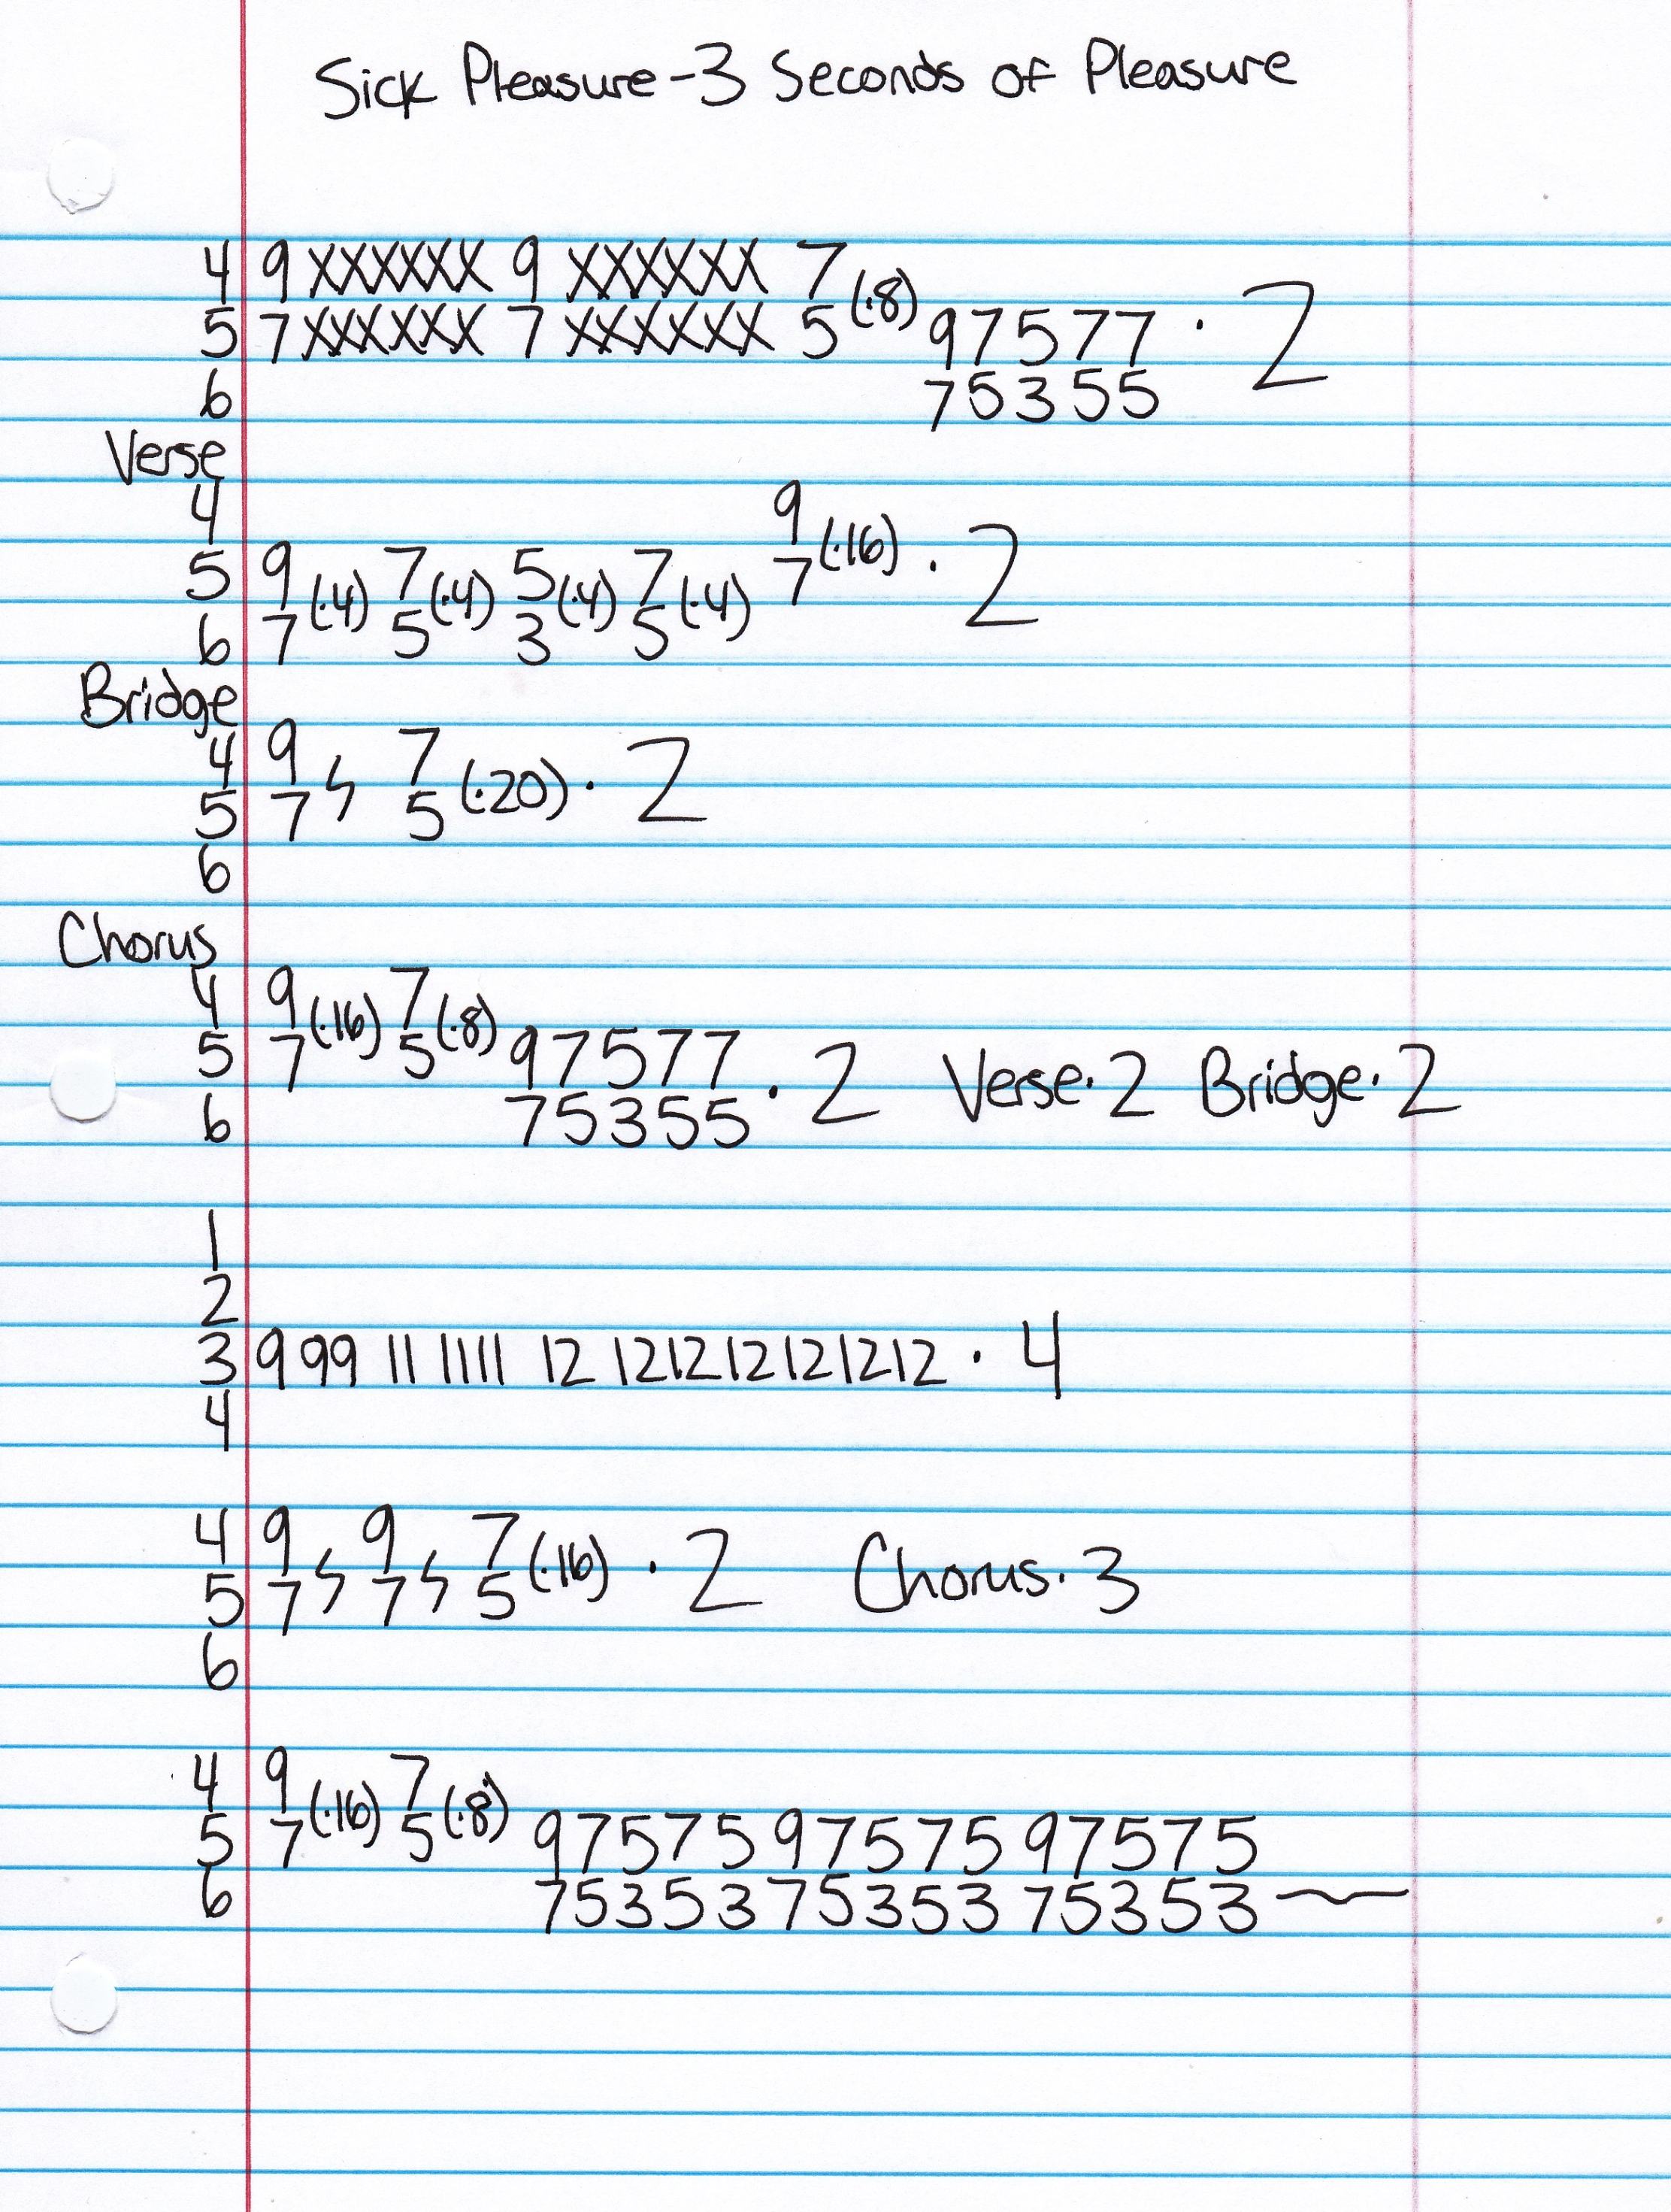 Sick Pleasure-3 Seconds of Pleasure
4 9 xxxxxx 9 xxxxxx 7
5 7 xxxxxx 7 xxxxxx 5 (·8) 97577 · 2
6 75355
Verse
4 9
5 9 7 5 7 7 (·16) · 2
6 7 (·4) 5 (·4) 3 (·4) 5 (·4)
Bridge
4 9 ϟ 7
5 7 5 (·20) · 2
6
Chorus
4 9 (·16) 7 (·8)
5 7 5 97577
6 75355 · 2 Verse·2 Bridge·2
1
2
3 9 99 11 1111 12 121212121212 · 4
4
4 9 ϟ 9 ϟ 7
5 7 7 5 (·16) · 2 Chorus·3
6
4 9 (·16) 7 (·8)
5 7 5 97575 97575 97575
6 75353 75353 75353